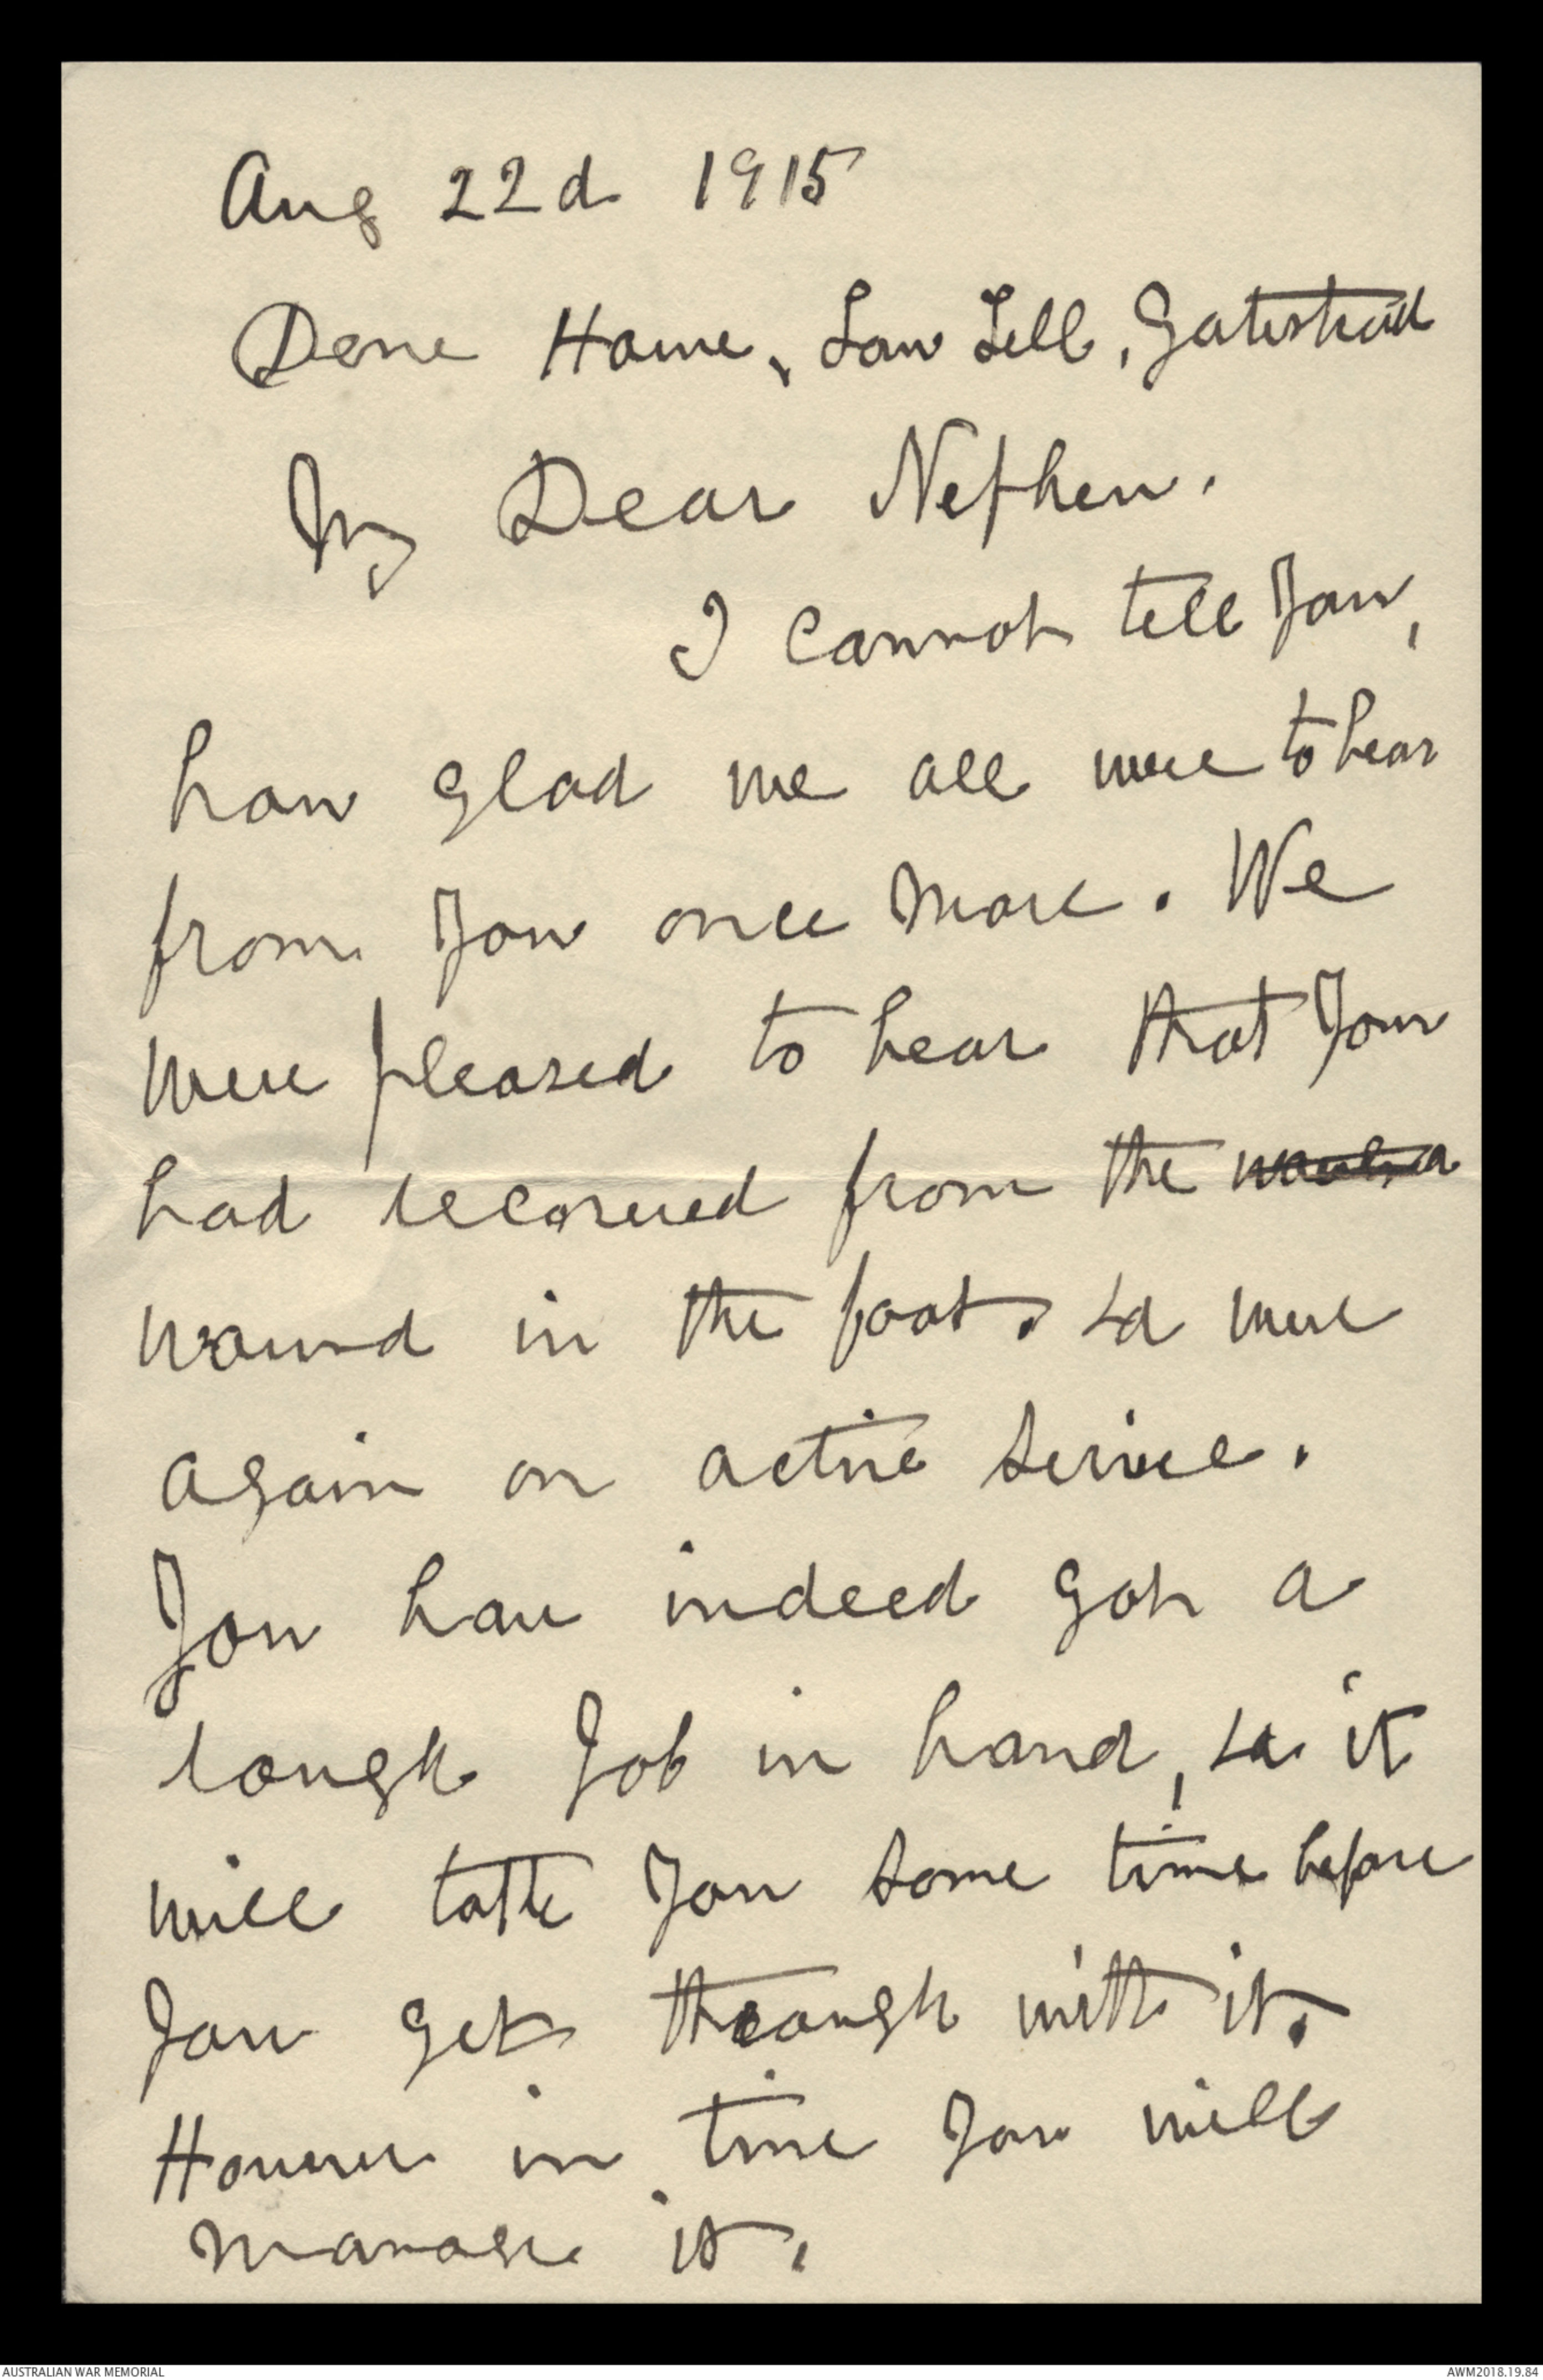 Aug 22d 1915
Dene House, Low Fell, Gateshead
My Dear Nephew.
I cannot tell You,
how glad we all were to hear
from You once More. We
were pleased to hear that Your
had recovered from the
wound in the foot. & were
again on active Service.
You have indeed got a
tough Job in hand, & it
will take You some time before
You get through with it.
However in time You will
manage it.
AUSTRALIAN WAR MEMORIAL
AWM2018.19.84